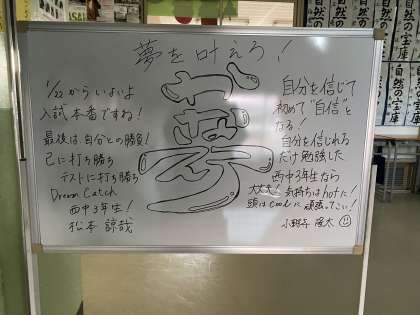 夢を叶えろ!
1/22からいよいよ
入試本番ですね!
最後は、自分との勝負!
己に打ち勝ち
テストに打ち勝ち
Dream Catch
西中3年生!
松本 諒哉
夢
自分を信じて
初めて"自信"と
なる!
自分を信じれる
だけ勉強した
西中3年生なら
大丈夫! 気持ちはhotに!
頭はcoolに 頑張ってこい!
小野寺 隆太
自然の宝庫
自然の宝庫
自信